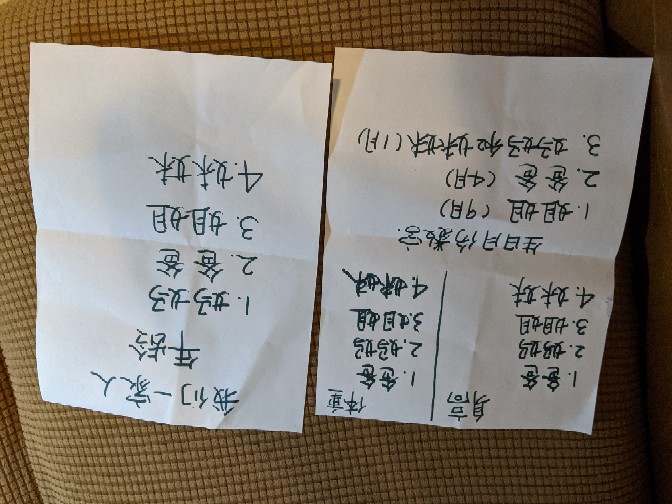 身高
1. 爸爸
2. 妈妈
3. 姐姐
4. 妹妹
体重
1. 爸爸
2. 妈妈
3. 姐姐
4. 妹妹
生日月份数字:
1. 姐姐 (9月)
2. 爸爸 (4月)
3. 妈妈和妹妹 (1月)
我们一家人
年龄
1. 妈妈
2. 爸爸
3. 姐姐
4. 妹妹